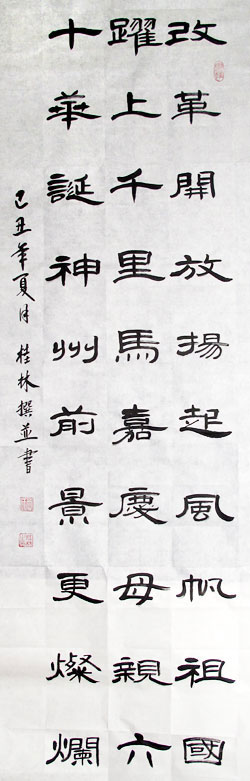 改革開放揚起風帆祖國
躍上千里馬嘉慶母親六
十華誕神州前景更燦爛
己丑年夏月桂林撰並書